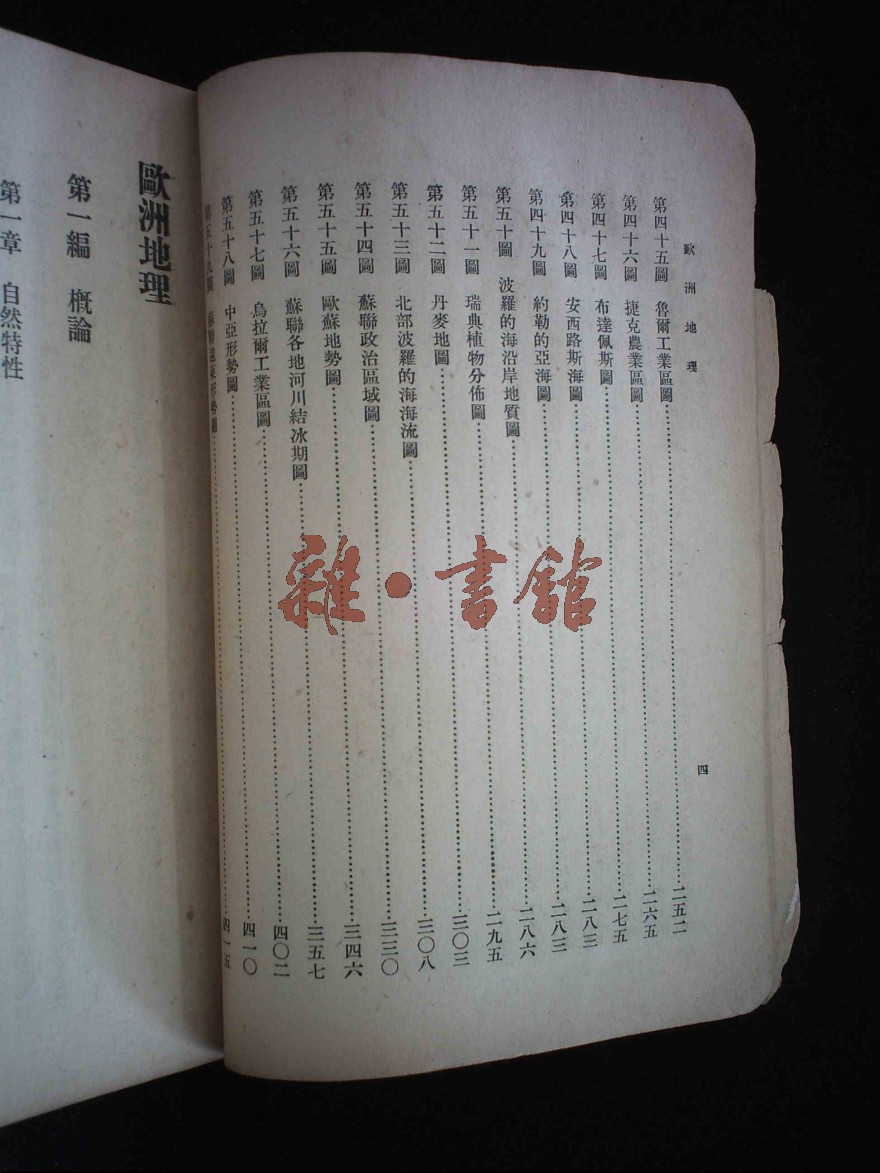 歐洲地理
四
第四十五圖 魯爾工業區圖……二五二
第四十六圖 捷克農業區圖……二六五
第四十七圖 布達佩斯圖……二七五
第四十八圖 安西路斯海圖……二八三
第四十九圖 約勒的亞海圖……二八六
第五十圖 波羅的海沿岸地質圖……二九五
第五十一圖 瑞典植物分佈圖……三〇三
第五十二圖 丹麥地圖……三〇八
第五十三圖 北部波羅的海海流圖……三三〇
第五十四圖 蘇聯政治區域圖……三四六
第五十五圖 歐蘇地勢圖……三五七
第五十六圖 蘇聯各地河川結冰期圖……四〇二
第五十七圖 烏拉爾工業區圖……四一〇
第五十八圖 中亞形勢圖……四一五
第五十九圖
歐洲地理
第一編 概論
第一章 自然特性
雜·書館